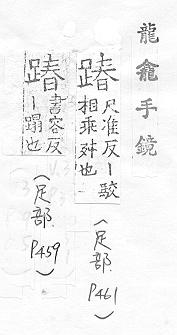 龍龕手鏡
蹖尺准反丨駮
相乘舛也
(足部
P461)
蹖書容反
丨蹋也
(足部
P459)